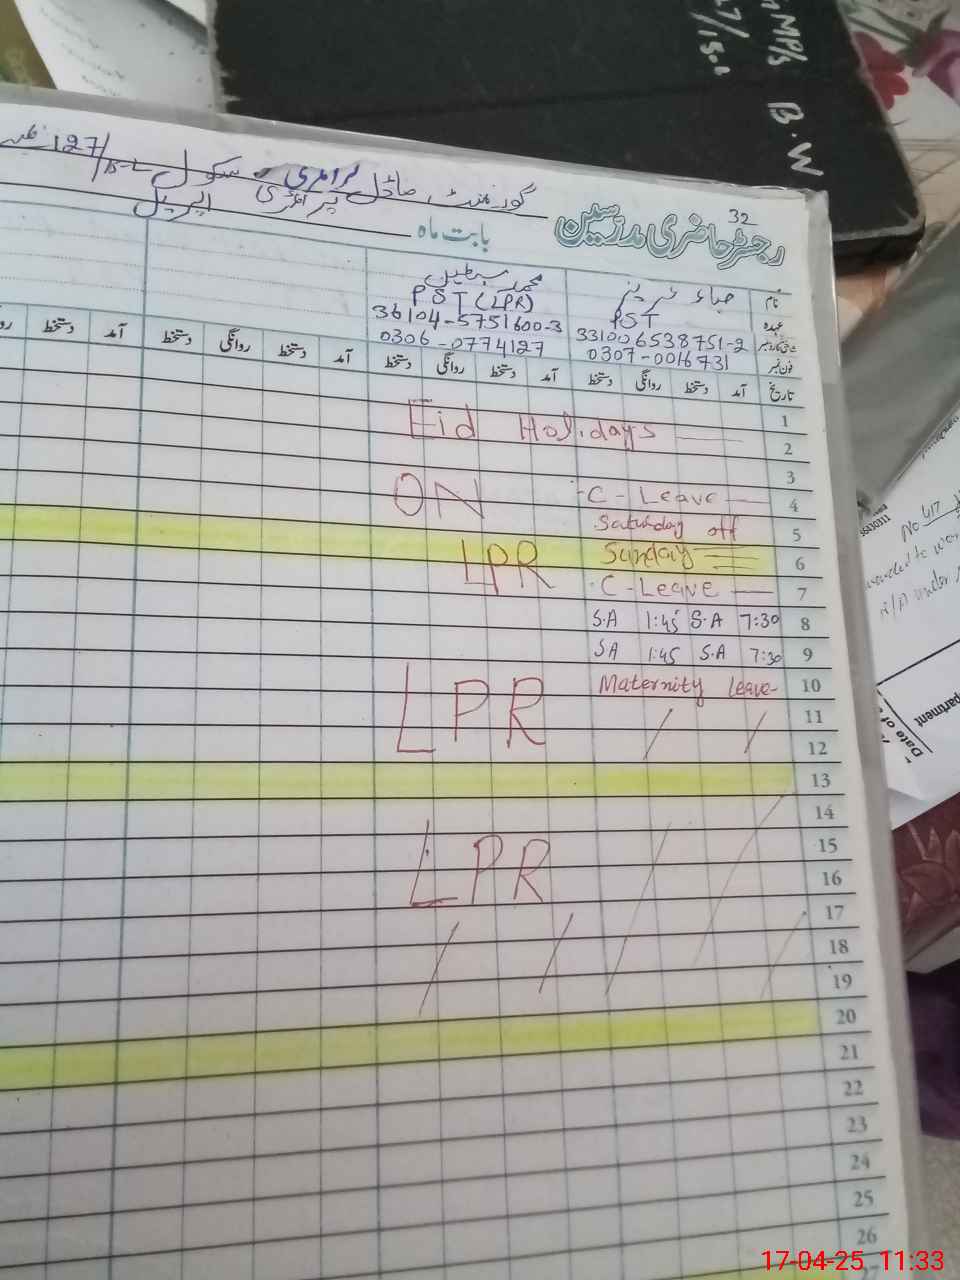 GMP/S B.W
27/15.L
32
گورنمنٹ ماڈل پرائمری سکول 127/15-L
پرائمری
رجسٹر حاضری مدرسین
بابت ماہ اپریل
نام
محمد سبطین
عہدہ PST
PST (LPR)
331006538751-2
36104-5751600-3
فون نمبر 0307-0016731
0306-0774127
تاریخ آمد دستخط روانگی دستخط آمد دستخط روانگی دستخط آمد دستخط روانگی دستخط آمد دستخط
1
Eid Holidays
2
3
4 C-Leave
ON
5 Saturday off
6 Sunday
LPR
7 C-Leave
8 7:30 S.A 1:45 S.A
9 7:30 S.A 1:45 SA
10 Maternity Leave
11
LPR
12
13
14
15
LPR
16
17
18
19
20
21
22
23
24
25
26
27
No 417
partment
Date of
17-04-25 11:33